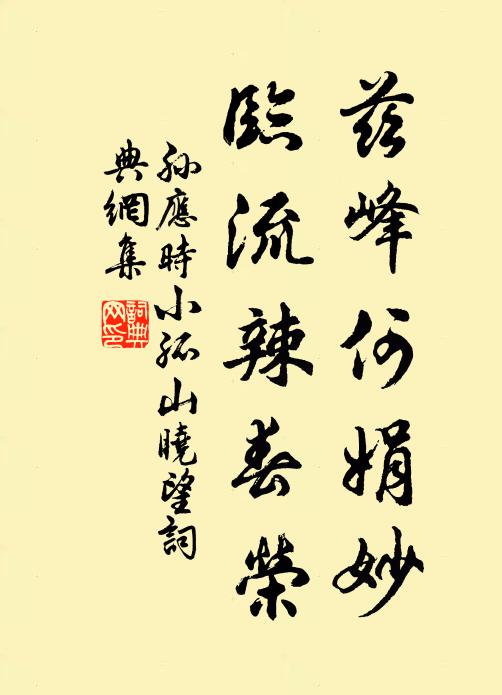 茲峰何娟妙
臨流辣春榮
孫應時小孤山曉望詞
典網集
詞典网印